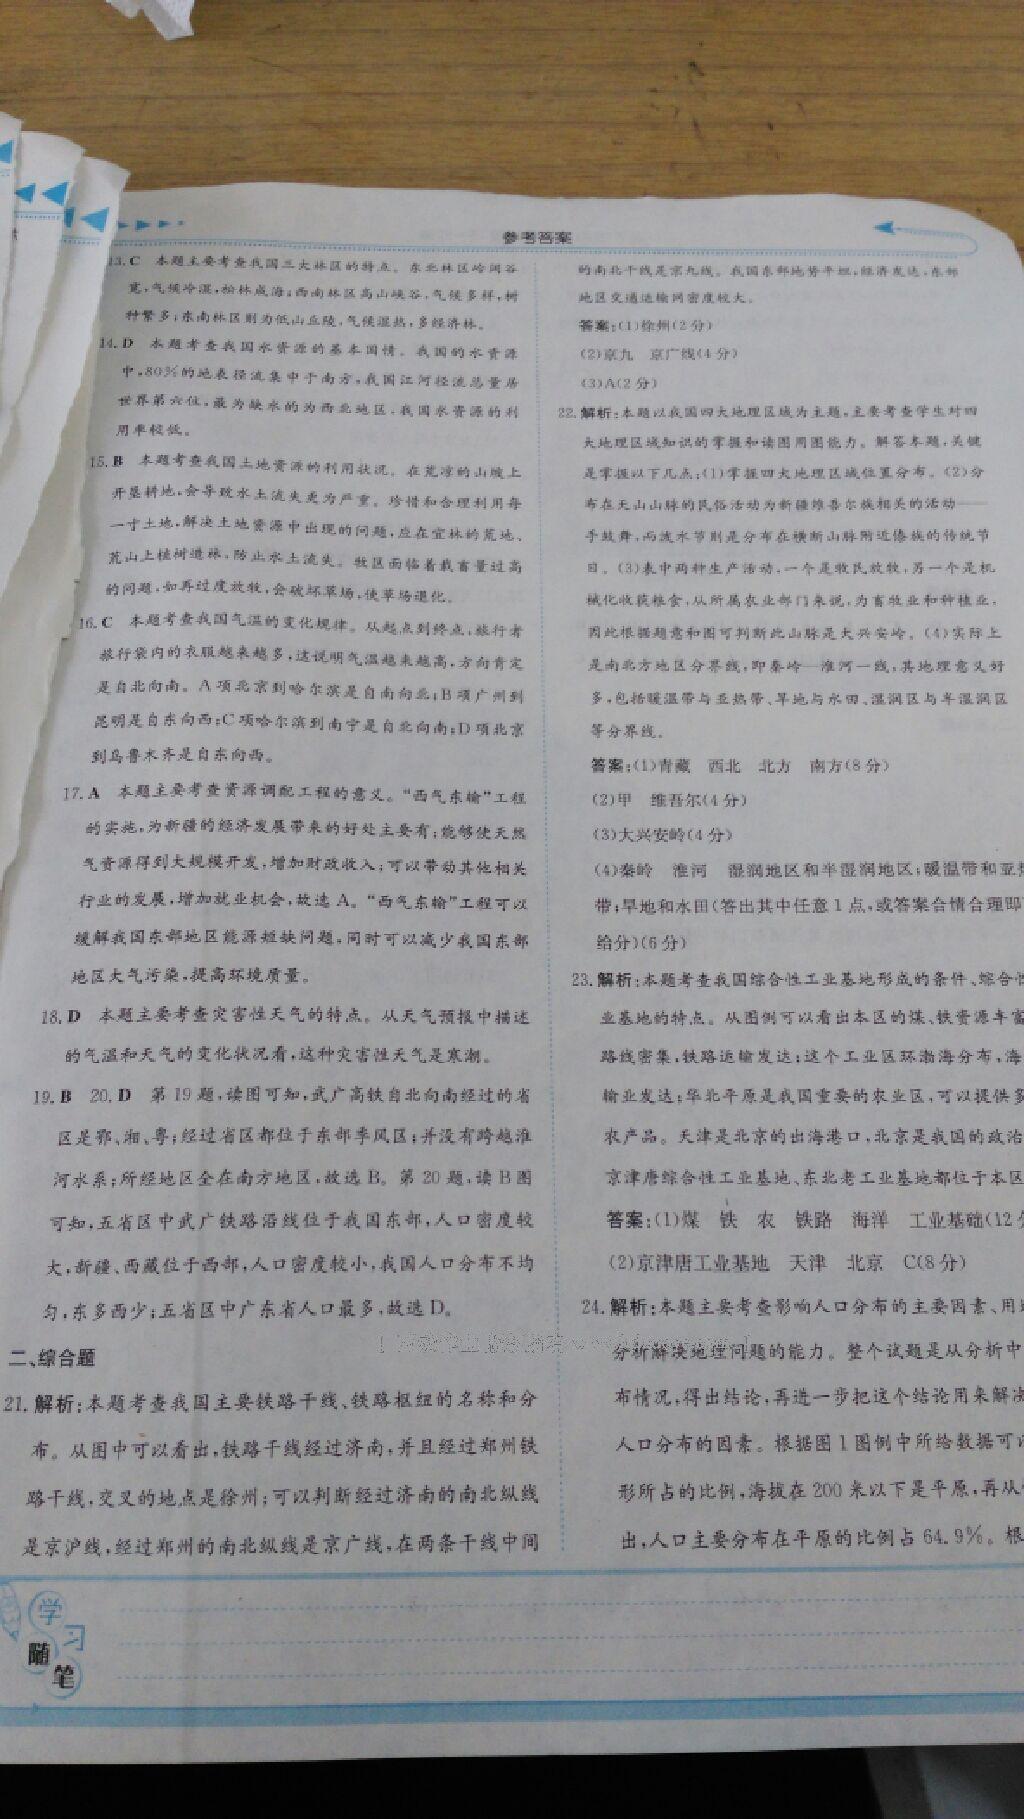 参考答案
13. C 本题主要考查我国三大林区的特点。东北林区岭间谷
宽,气候冷湿,松林成海;西南林区高山峡谷,气候多样,树
种繁多;东南林区则为低山丘陵,气候湿热,多经济林。
14. D 本题考查我国水资源的基本国情。我国的水资源
中,80%的地表径流集中于南方,我国江河径流总量居
世界第六位,最为缺水的为西北地区,我国水资源的利
用率较低。
15. B 本题考查我国土地资源的利用状况。在荒凉的山坡上
开垦耕地,会导致水土流失更为严重。珍惜和合理利用每
一寸土地,解决土地资源中出现的问题,应在宜林的荒地、
荒山上植树造林,防止水土流失。牧区面临着载畜量过高
的问题,如再过度放牧,会破坏草场,使草场退化。
16. C 本题考查我国气温的变化规律。从起点到终点,旅行者
旅行袋内的衣服越来越多,这说明气温越来越高,方向肯定
是自北向南。A项北京到哈尔滨是自南向北;B项广州到
昆明是自东向西;C项哈尔滨到南宁是自北向南;D项北京
到乌鲁木齐是自东向西。
17. A 本题主要考查资源调配工程的意义。“西气东输”工程
的实施,为新疆的经济发展带来的好处主要有:能够使天然
气资源得到大规模开发,增加财政收入;可以带动其他相关
行业的发展,增加就业机会,故选 A。“西气东输”工程可以
缓解我国东部地区能源短缺问题,同时可以减少我国东部
地区大气污染,提高环境质量。
18. D 本题主要考查灾害性天气的特点。从天气预报中描述
的气温和天气的变化状况看,这种灾害性天气是寒潮。
19. B 20. D 第 19 题,读图可知,武广高铁自北向南经过的省
区是鄂、湘、粤;经过省区都位于东部季风区;并没有跨越淮
河水系;所经地区全在南方地区,故选 B。第 20 题,读 B 图
可知,五省区中武广铁路沿线位于我国东部,人口密度较
大,新疆、西藏位于西部,人口密度较小,我国人口分布不均
匀,东多西少;五省区中广东省人口最多,故选 D。
二、综合题
21. 解析:本题考查我国主要铁路干线、铁路枢纽的名称和分
布。从图中可以看出,铁路干线经过济南,并且经过郑州铁
路干线,交叉的地点是徐州;可以判断经过济南的南北纵线
是京沪线,经过郑州的南北纵线是京广线,在两条干线中间
的南北干线是京九线。我国东部地势平坦,经济发达,东部
地区交通运输网密度较大。
答案:(1)徐州(2分)
(2)京九 京广线(4分)
(3)A(2分)
22. 解析:本题以我国四大地理区域为主题,主要考查学生对四
大地理区域知识的掌握和读图用图能力。解答本题,关键
是掌握以下几点:(1)掌握四大地理区域位置分布。(2)分
布在天山山脉的民俗活动为新疆维吾尔族相关的活动——
手鼓舞,而泼水节则是分布在横断山脉附近傣族的传统节
日。(3)表中两种生产活动,一个是牧民放牧,另一个是机
械化收获粮食,从所属农业部门来说,为畜牧业和种植业,
因此根据题意和图可判断此山脉是大兴安岭。(4)实际上
是南北方地区分界线,即秦岭—淮河一线,其地理意义好
多,包括暖温带与亚热带、旱地与水田、湿润区与半湿润区
等分界线。
答案:(1)青藏 西北 北方 南方(8分)
(2)甲 维吾尔(4分)
(3)大兴安岭(4分)
(4)秦岭 淮河 湿润地区和半湿润地区;暖温带和亚热
带;旱地和水田(答出其中任意 1 点,或答案合情合理即
给分)(6分)
23. 解析:本题考查我国综合性工业基地形成的条件、综合性
业基地的特点。从图例可以看出本区的煤、铁资源丰富
路线密集,铁路运输发达;这个工业区环渤海分布,海
输业发达;华北平原是我国重要的农业区,可以提供多
农产品。天津是北京的出海港口,北京是我国的政治
京津唐综合性工业基地、东北老工业基地都位于本区
答案:(1)煤 铁 农 铁路 海洋 工业基础(12分
(2)京津唐工业基地 天津 北京 C(8分)
24. 解析:本题主要考查影响人口分布的主要因素、用
分析解决地理问题的能力。整个试题是从分析中
布情况,得出结论,再进一步把这个结论用来解决
人口分布的因素。根据图 1 图例中所给数据可
形所占的比例,海拔在 200 米以下是平原,再从
出,人口主要分布在平原的比例占 64.9%。根
学习
随笔